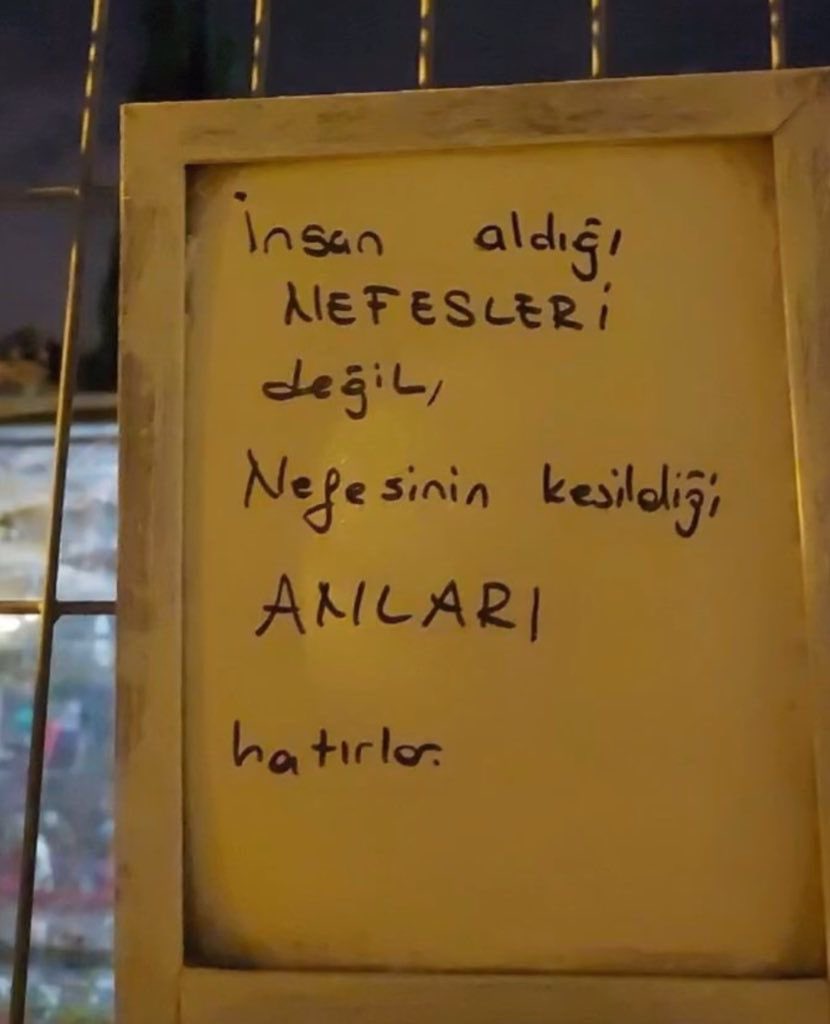 İnsan aldığı
NEFESLERİ
değil,
Nefesinin kesildiği
ANLARI
hatırlar.